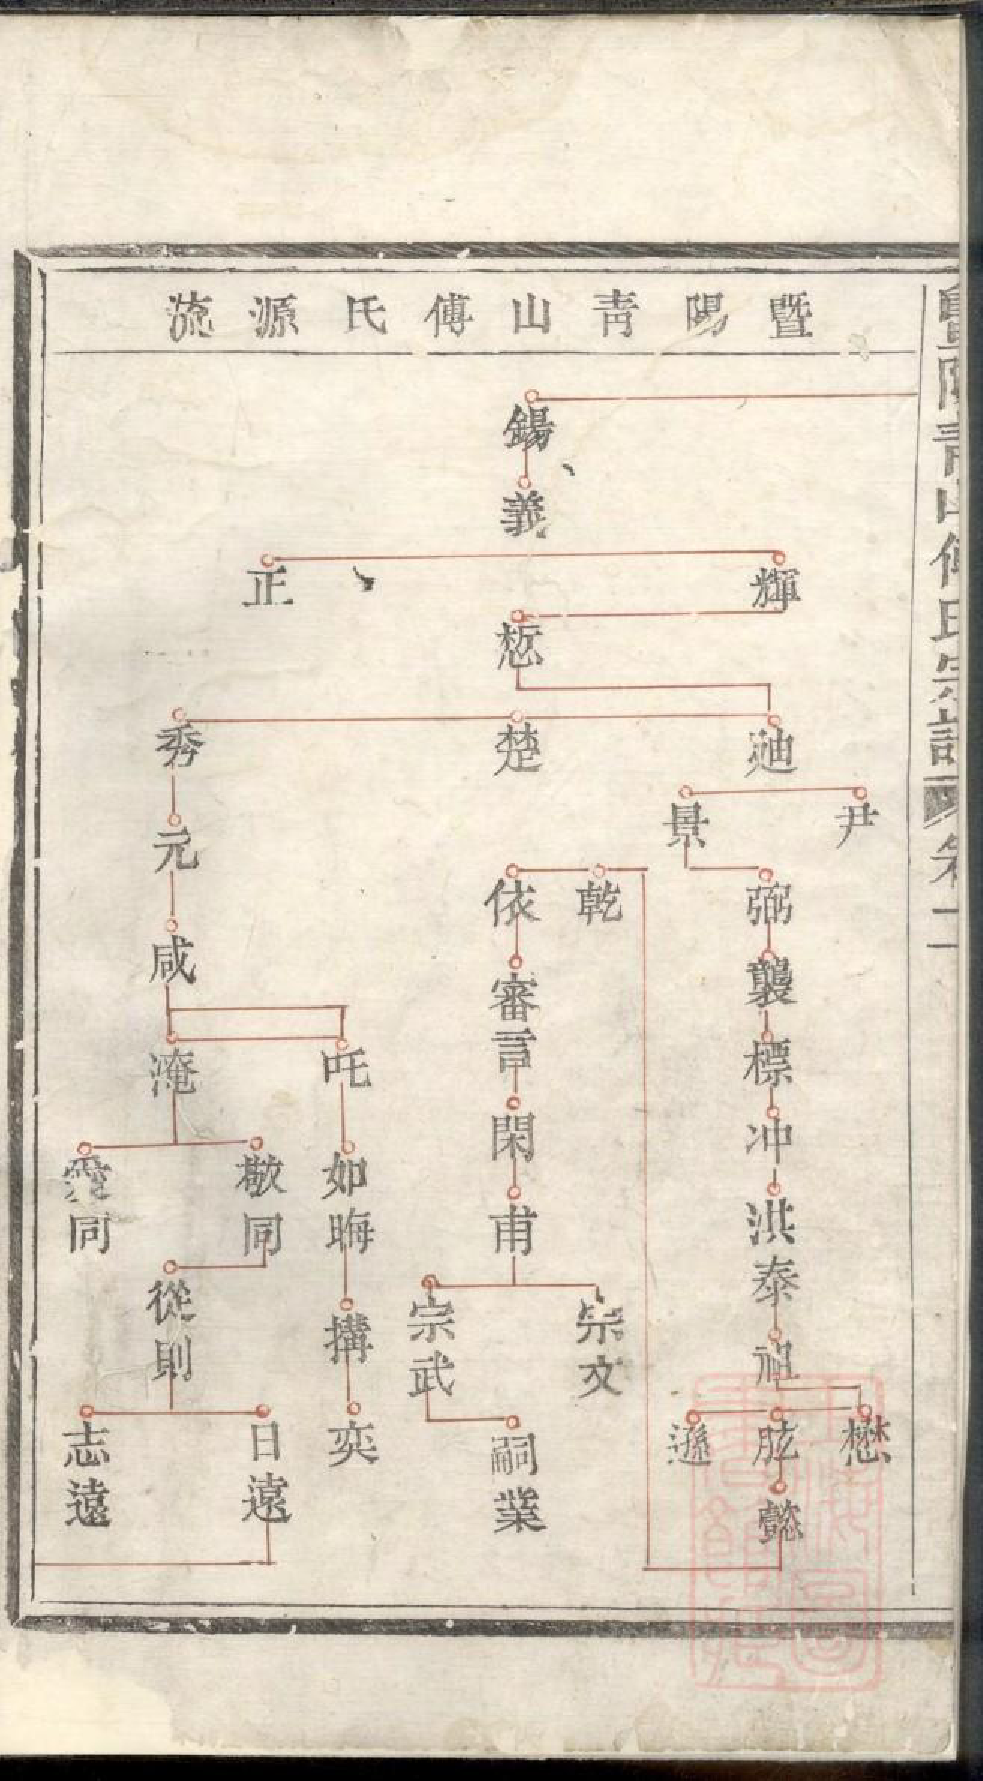 暨陽青山傅氏源流
錫
義
輝
正
惁
廸
楚
秀
尹
景
弼
襲
標
冲
洪
泰
祖
懋
肱
遜
懿
乾
依
審言
閑
甫
宗文
宗武
嗣業
元
咸
淹
吒
如晦
搆
奕
敬同
同
從則
日遠
志遠
暨陽青山傅氏宗譜
卷一